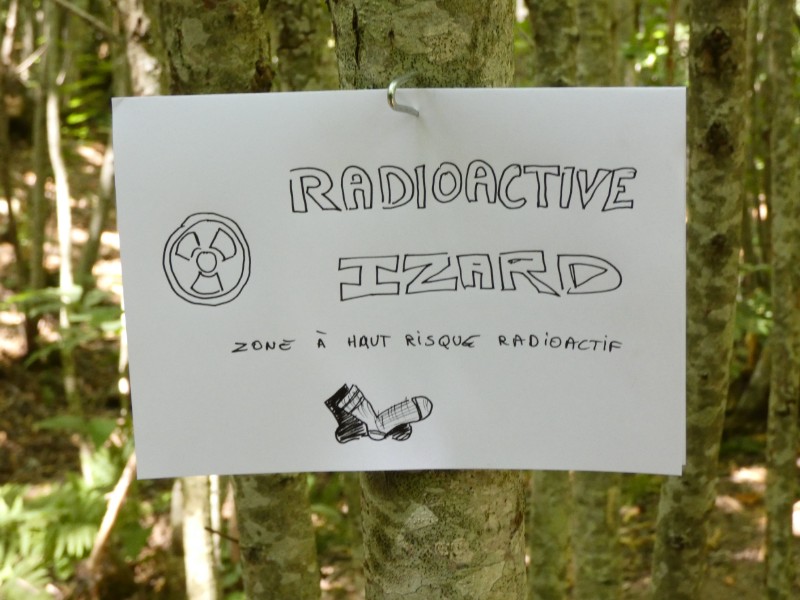 RADIOACTIVE
IZARD
ZONE À HAUT RISQUE RADIOACTIF